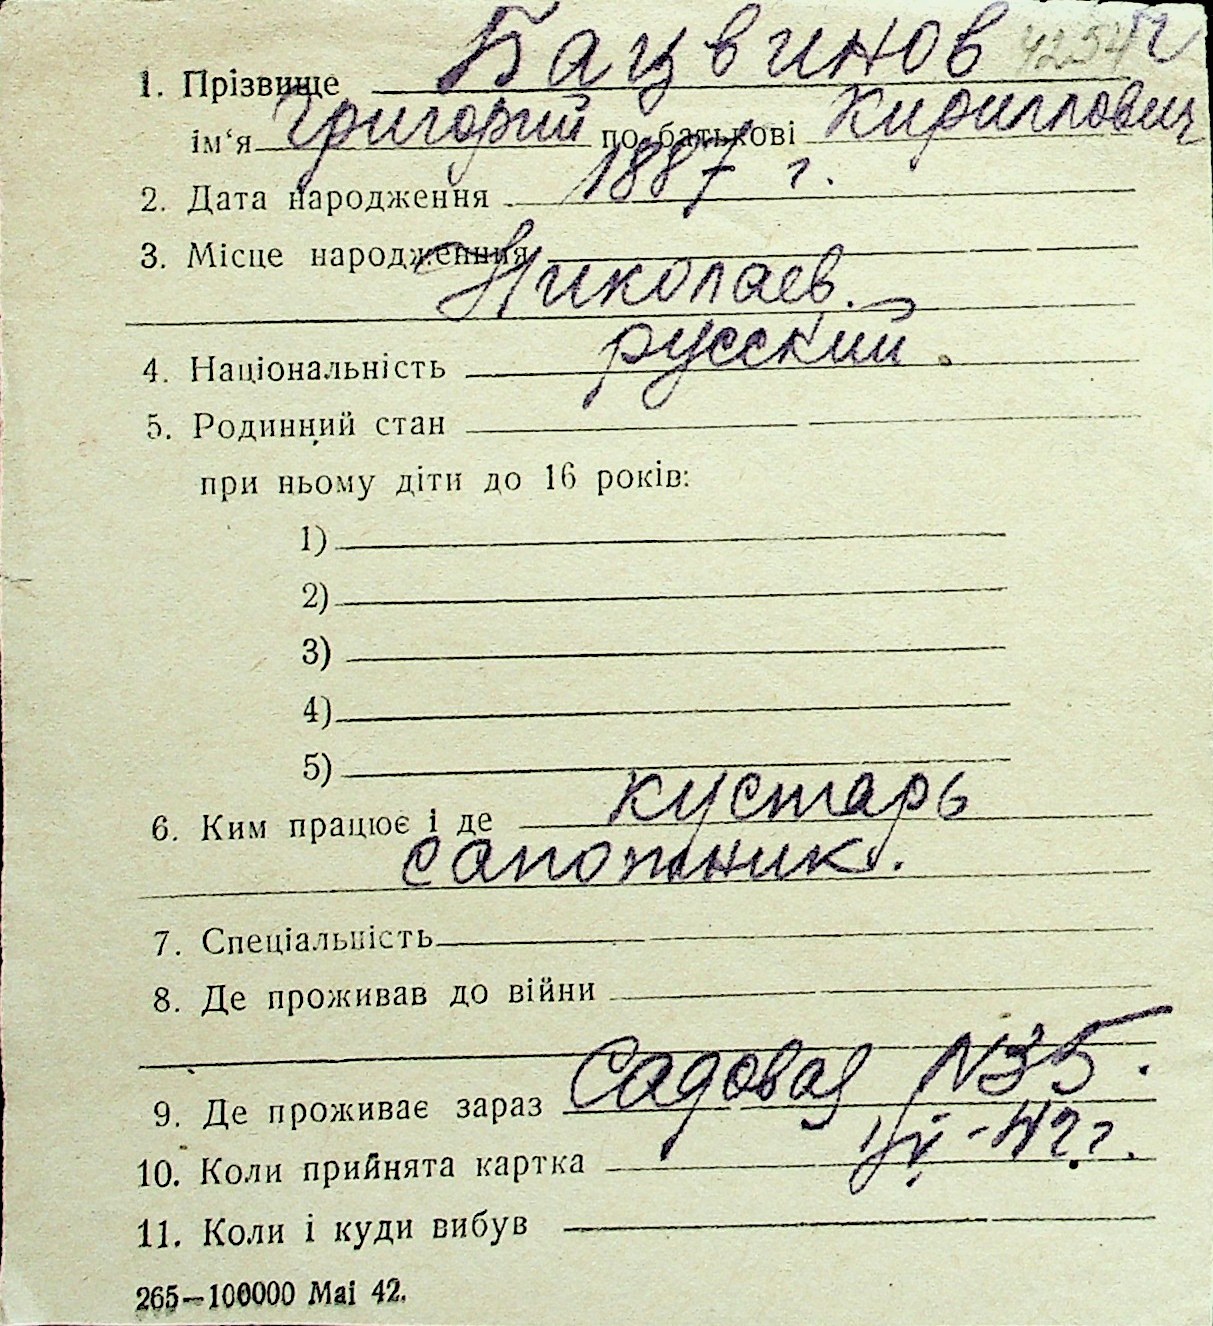 1. Прізвище Бацвинов 4254
ім‘я Григорий по-батькові Кириллович
2. Дата народження 1887 г.
3. Місце народження
Николаев.
4. Національність русский.
5. Родинний стан
при ньому діти до 16 років:
1)
2)
3)
4)
5)
6. Ким працює і де кустарь
сапожник.
7. Спеціальність
8. Де проживав до війни
9. Де проживає зараз Садовая N35.
10. Коли прийнята картка -42 г.
11. Коли і куди вибув
265—100000 Mai 42.